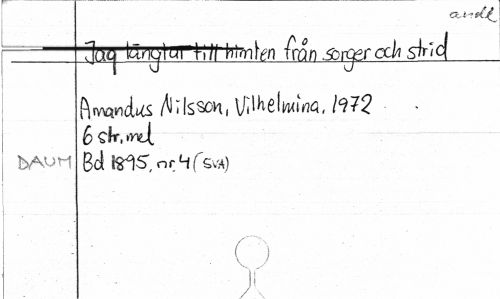 andl
Jag längtar till himlen från sorger och strid
Amandus Nilsson, Vilhelmina, 1972
6 str, mel
DAUM Bd 1895, nr. 4 (SVA)